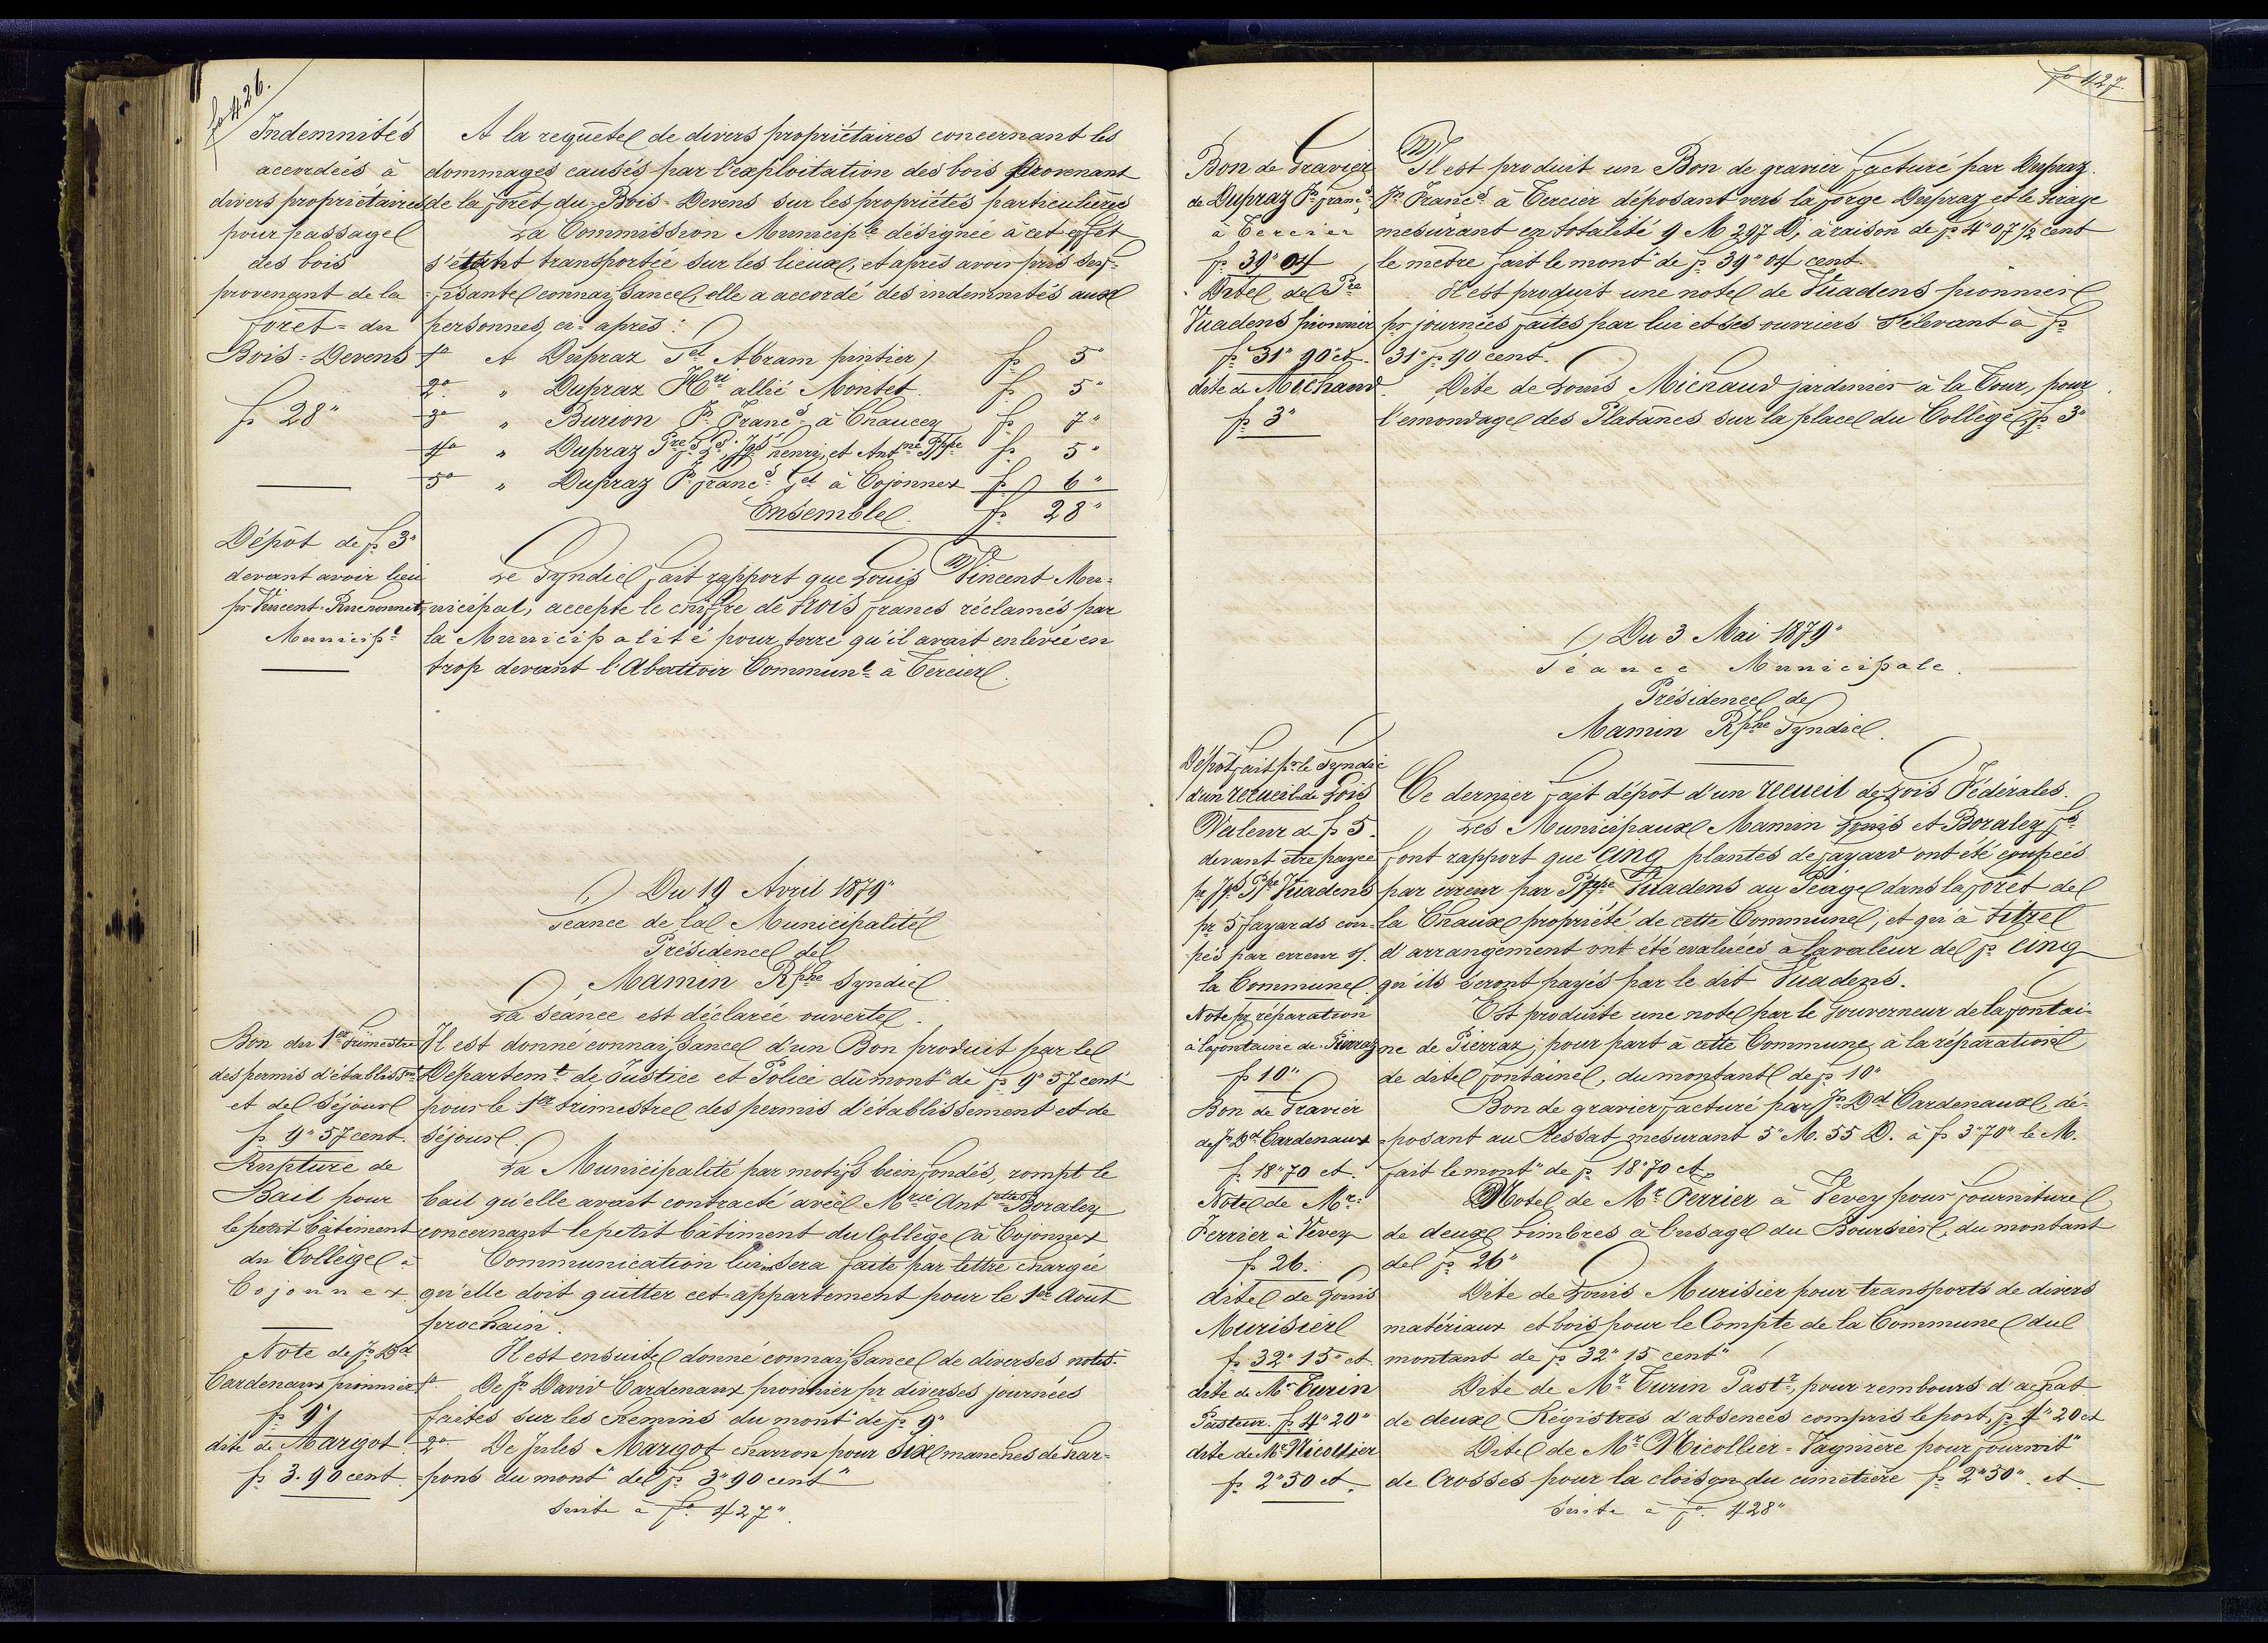 fo 426.
Indemnités
accordées à
divers propriétaires
pour passage
des bois
provenant de la
forêt du
Bois-Devens
fr 28"
Dépôt de fr 3"
devant avoir lieu
pr Vincent
Municipl
A la requête de divers propriétaires concernant les
dommages causés par l'exploitation des bois provenant
de la forêt du Bois-Devens sur les propriétés particulières
La Commission Municiple désignée à cet effet
s'étant transportée sur les lieux, et après avoir pris suf=
=fisante connaissance, elle a accordé des indemnités aux
personnes, ci-après:
1o A Dupraz Abram pintier fr 5"
2o " Dupraz Hri allié Montet fr 5"
3o " Burion Jn Francs à Chaucey fr 7"
4o " Dupraz Henri, et Antne fr 5"
5o " Dupraz Jn francs à Cojonnex fr 6"
Ensemble fr 28"
Le Syndic fait rapport que Louis Vincent Mu=
nicipal, accepte le chiffre de trois francs réclamés par
la Municipalité pour terre qu'il avait enlevée en
trop devant l'Abattoir Communl à Tercier.
Du 19 Avril 1879"
Séance de la Municipalité
Présidence de
Mamin Rphe Syndic
La séance est déclarée ouverte.
Bon du 1er trimestre
des permis d'établissmt
et de Séjour
fr 9" 57 cent.
Il est donné connaissance d'un Bon produit par le
Départemt de Justice et Police du mont" de fr 9" 57 cent"
pour le 1er trimestre des permis d'établissement et de
séjour.
Rupture de
Bail pour
le petit bâtiment
du Collège à
Cojonnex
La Municipalité par motifs bien fondés, rompt le
bail qu'elle avait contracté avec Boraley
concernant le petit bâtiment du Collège à Cojonnex
Communication lui en sera faite par lettre chargée
qu'elle doit quitter cet appartement pour le 1er Aout
prochain.
Note de Jn Dd
Cardenaux pionnier
fr 9"
dite de Margot
fr 3.90 cent.
Il est ensuite donné connaissance de diverses notes.
1o De Jn David Cardenaux pionnier pr diverses journées
faites sur les chemins du mont" de fr 9"
2o De Jules Margot charron pour six manches de har=
=pons du mont" de fr 3" 90 cent"
Suite à fo 427".
fo 427.
Bon de Gravier
de Dupraz Jn francs
à Tercier
fr 39" 04
Il est produit un Bon de gravier facturé par Dupraz
Jn Francs à Tercier déposant vers la forge Dupraz et le tirage
mesurant en totalité 9 M 297 D, à raison de fr 4" 07 1/2 cent
le mètre fait le mont" de fr 39" 04 cent.
Dite de
Vuadens pionnier
fr 31" 90 ct.
Il est produit une note de Vuadens pionnier
pr journées faites par lui et ses ouvriers s'élevant à fr
31" fr 90 cent.
dite de Michaud
fr 3"
Dite de Louis Michaud jardinier à la Tour, pour
l'emondage des Platanes sur la place du Collège, fr 3"
Du 3 Mai 1879"
Séance Municipale.
Présidence de
Mamin Rphe Syndic.
Dépôt fait pr le Syndic
d'un recueil de Lois
Ce dernier fait dépôt d'un recueil de Lois Fédérales.
Valeur de fr 5.
devant être payée
pr Vuadens
pr 5 fayards cou-
pés par erreur s/.
la Commune
Les Municipaux Mamin Louis et Boraley
font rapport que cinq plantes de fayard ont été coupées
par erreur par Vuadens au Péage dans la forêt de
la Chaux propriété de cette Commune, et qu'à titre
d'arrangement ont été evaluées à la valeur de fr cinq
qu'ils seront payés par le dit Vuadens.
Note pr réparation
à la fontaine de Pierraz
fr 10"
Est produite une note par le Gouverneur de la fontai-
ne de Pierraz, pour part à cette Commune à la réparation
de dite fontaine, du montant de fr 10"
Bon de Gravier
de Jn Dd Cardenaux
fr 18" 70 ct.
Bon de gravier facturé par Jn Dd Cardenaux, dé-
=posant au Ressat mesurant 5" M. 55 D. à fr 3" 70" le M.
fait le mont" de fr 18" 70 ct
Note de Mr
Perrier à Vevey
fr 26.
Note de Mr Perrier à Vevey pour fourniture
de deux timbres à l'usage du Boursier, du montant
de fr 26"
dite de Louis
Murisier
fr 32" 15" ct
Dite de Louis Murisier pour transports de divers
matériaux et bois pour le Compte de la Commune du
montant de fr 32" 15 cent"
dite de Mr Turin
Pasteur fr 4" 20"
Dite de Mr Turin Pastr, pour rembours d'achat
de deux Régistres d'absences compris le port, fr 4" 20 ct
dite de Mr Nicollier
fr 2" 50 ct.
Dite de Mr Nicollier-Vagnière pour fournit"
de Crosses pour la cloison du cimetière fr 2" 50" ct
Suite à fo 428"